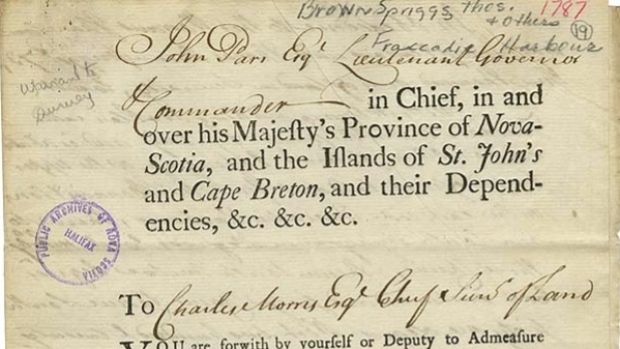 Brownspriggs Thos. 1787
& others 19
Fraccadie Harbour
Warrant to
Survey
John Parr Esqr. Lieutenant Governor
& Commander in Chief, in and
over his Majeſty's Province of Nova-
Scotia, and the Iſlands of St. John's
and Cape Breton, and their Depend-
encies, &c. &c. &c.
PUBLIC ARCHIVES OF NOVA SCOTIA
HALIFAX
To Charles Morris Esqr. Chief Survr. of Land
YOU are forwith by yourself or Deputy to Admeaſure